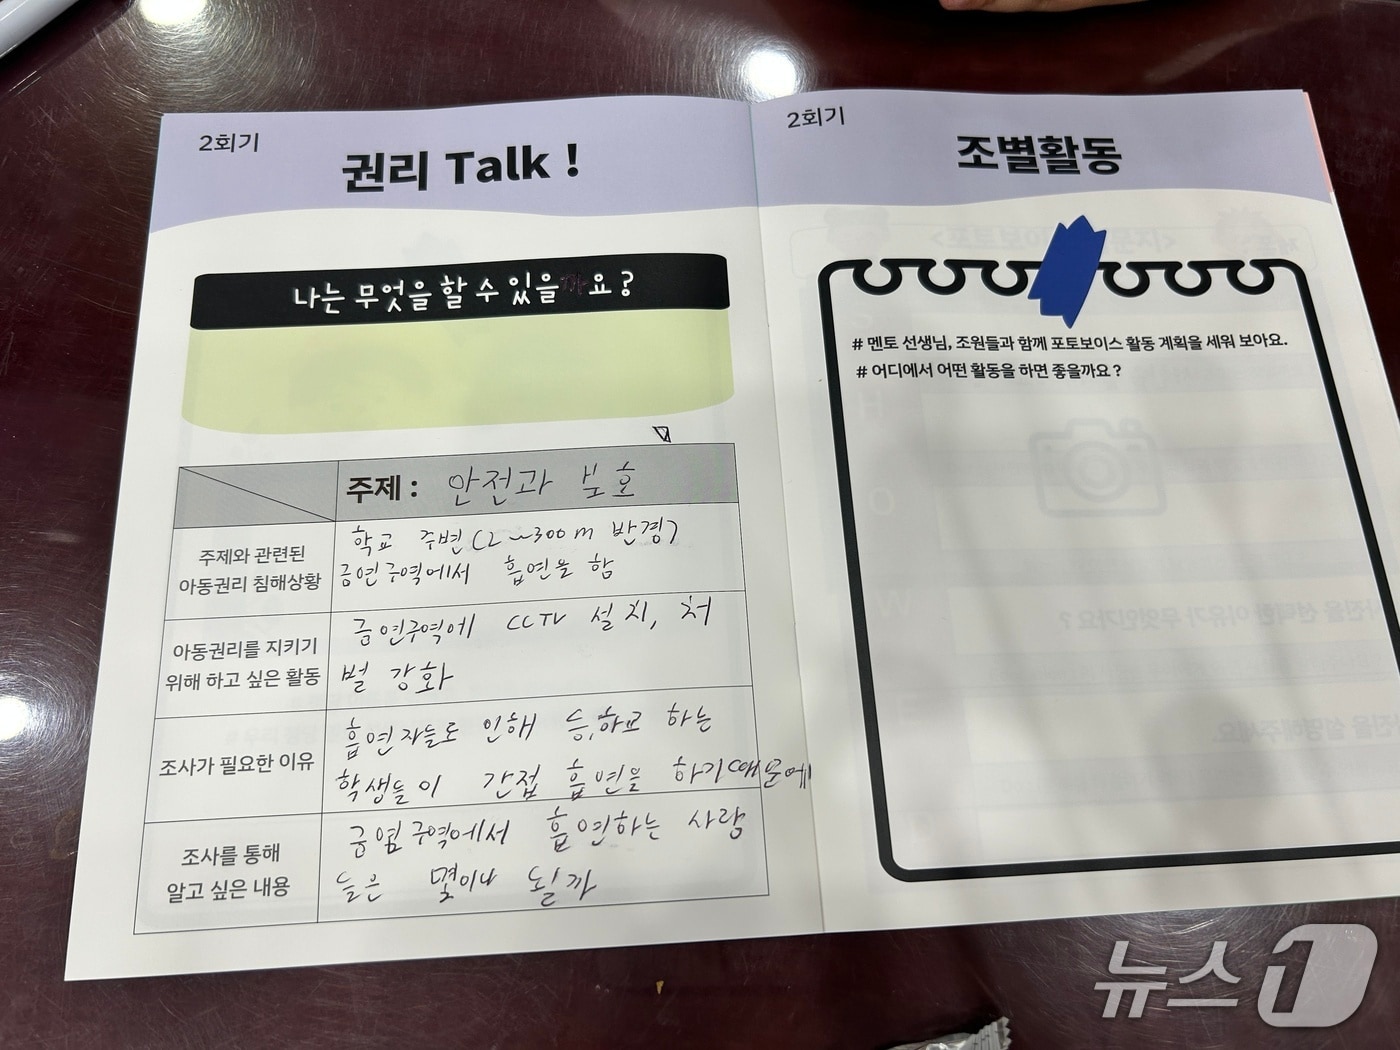 2회기
권리 Talk !
나는 무엇을 할 수 있을까요?
주제 : 안전과 보호
주제와 관련된
아동권리 침해상황
학교 주변(2~300m 반경)
금연구역에서 흡연을 함
아동권리를 지키기
위해 하고 싶은 활동
금연구역에 CCTV 설치, 처
벌 강화
조사가 필요한 이유
흡연자들로 인해 등,하교 하는
학생들이 간접 흡연을 하기때문에
조사를 통해
알고 싶은 내용
금염구역에서 흡연하는 사람
들은 몇이나 될까
2회기
조별활동
# 멘토 선생님, 조원들과 함께 포토보이스 활동 계획을 세워 보아요.
# 어디에서 어떤 활동을 하면 좋을까요?
뉴스1